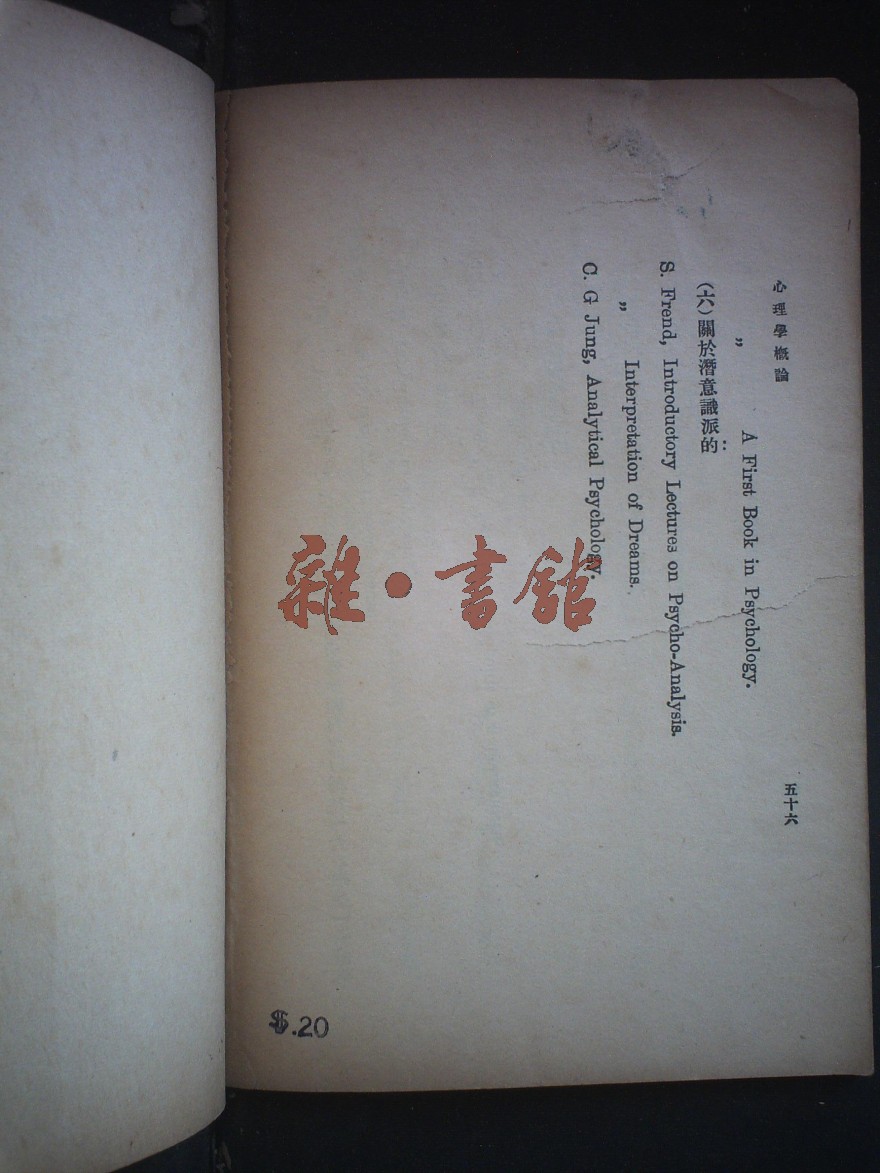 心理學概論
五十六
” A First Book in Psychology.
(六)關於潛意識派的:
S. Frend, Introductory Lectures on Psycho-Analysis.
” Interpretation of Dreams.
C. G Jung, Analytical Psychology.
雜·書館
$.20